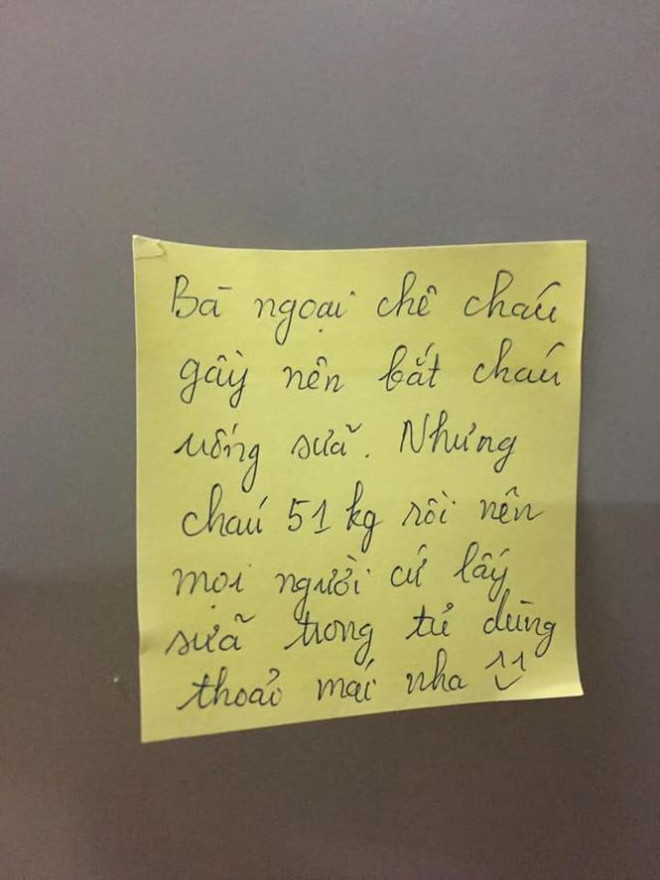 Bà ngoại chê cháu
gầy nên bắt cháu
uống sữa. Nhưng
cháu 51 kg rồi nên
mọi người cứ lấy
sữa trong tủ dùng
thoải mái nha